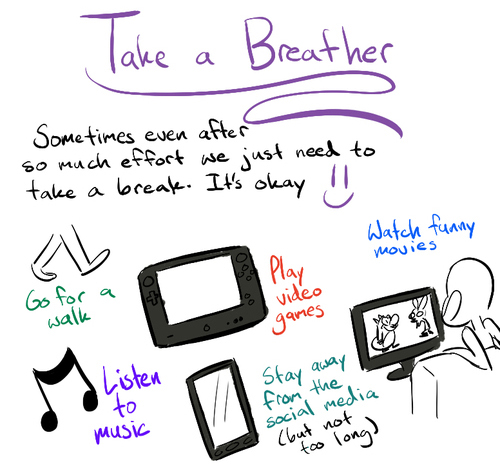 Take a Breather
Sometimes even after
so much effort we just need to
take a break. It's okay
Watch funny
movies
Go for a
walk
Play
video
games
Listen
to
music
Stay away
from the
social media
(but not
too long)